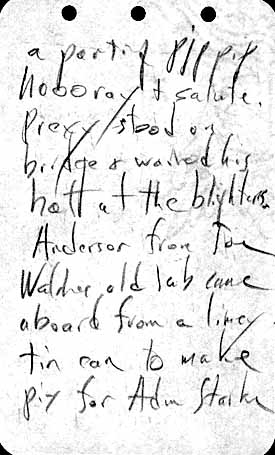 a parting pip pip
hooray & salute.
Prexy stood on
bridge & waived his
hatt at the blighters.
Anderson from Tom
old lab came
aboard from a limey
tin can to make
pix for Adm Stark